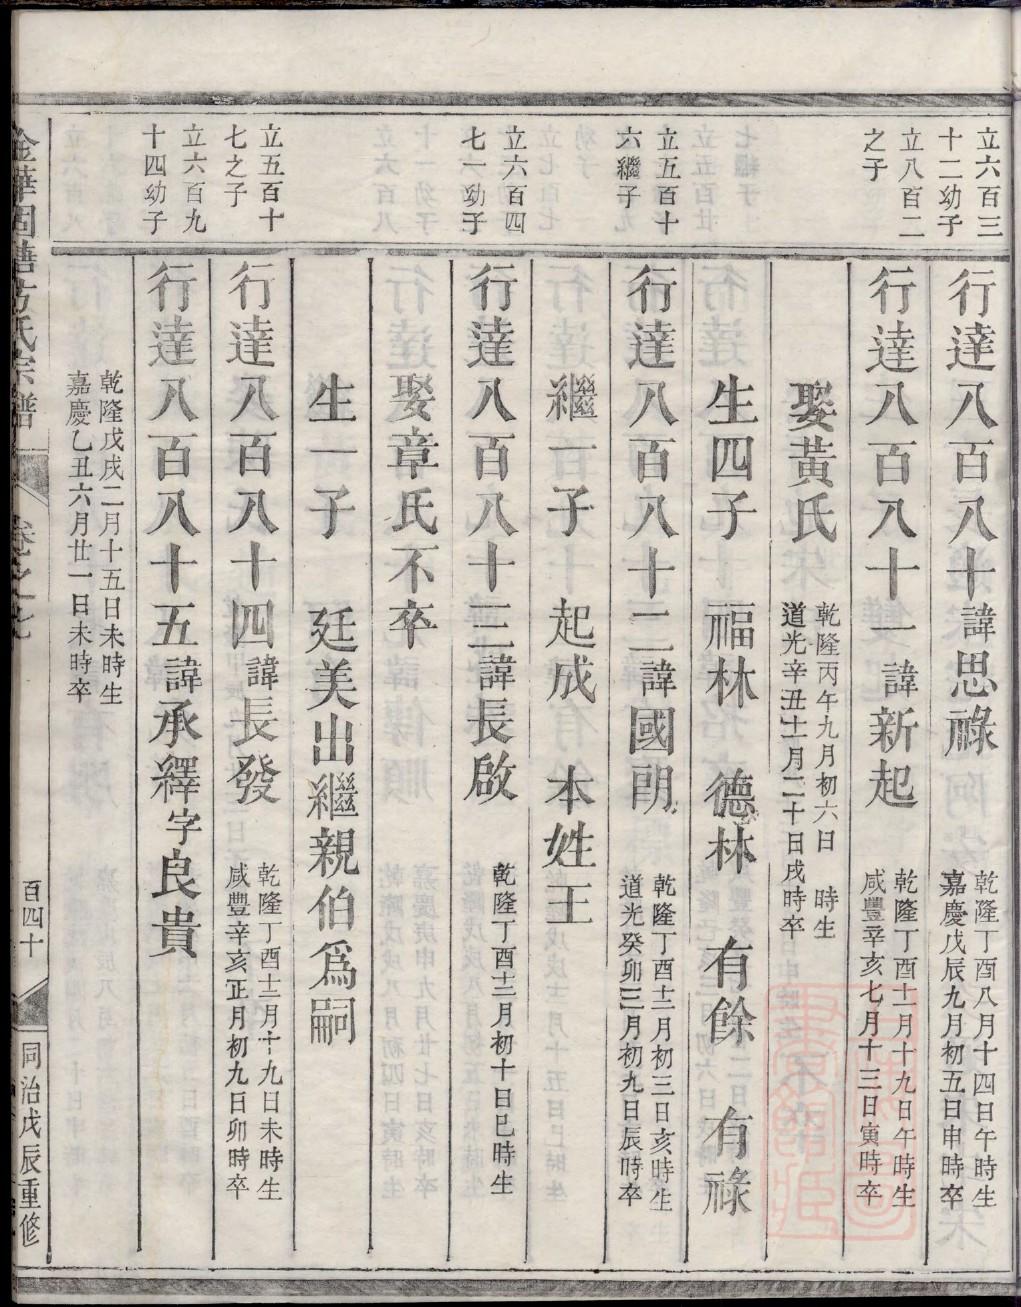 立六百三
十二幼子
行達八百八十諱思祿
乾隆丁酉八月十四日午時生
嘉慶戊辰九月初五日申時卒
立八百二
之子
行達八百八十一諱新起
乾隆丁酉十一月十九日午時生
咸豐辛亥七月十三日寅時卒
娶黃氏
乾隆丙午九月初六日 時生
道光辛丑十一月二十日戌時卒
生四子 福林 德林 有餘 有祿
立五百十
六繼子
行達八百八十二諱國朗
乾隆丁酉十二月初三日亥時生
道光癸卯三月初九日辰時卒
繼一子 起成 本姓王
立六百四
七一幼子
行達八百八十三諱長啟
乾隆丁酉十二月初十日巳時生
娶章氏不卒
生一子 廷美出繼親伯爲嗣
立五百十
七之子
行達八百八十四諱長發
乾隆丁酉十二月十九日未時生
咸豐辛亥正月初九日卯時卒
立六百九
十四幼子
行達八百八十五諱承繹字良貴
乾隆戊戌二月十五日未時生
嘉慶乙丑六月廿一日未時卒
方氏宗譜 卷之七 百四十 同治戊辰重修